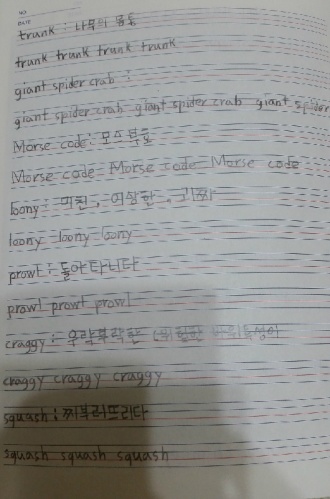 NO
DATE
trunk : 나무의 몸통
trunk trunk trunk trunk
giant spider crab :
giant spider crab giant spider crab giant spider
Morse code : 모스부호
Morse code Morse code Morse code
loony : 미친, 이상한, 괴짜
loony loony loony
prowl : 돌아다니다
prowl prowl prowl
craggy : 우락부락한
craggy craggy craggy
squash : 찌부러뜨리다
squash squash squash